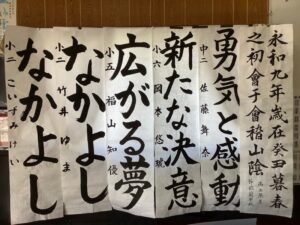 永和九年歳在癸丑暮春
之初會于會稽山陰
勇気と感動
中二 佐藤舞奈
新たな決意
小六 岡本悠琥
広がる夢
小五 福山知優
なかよし
小二 竹井ゆま
なかよし
小二 こいずみけい